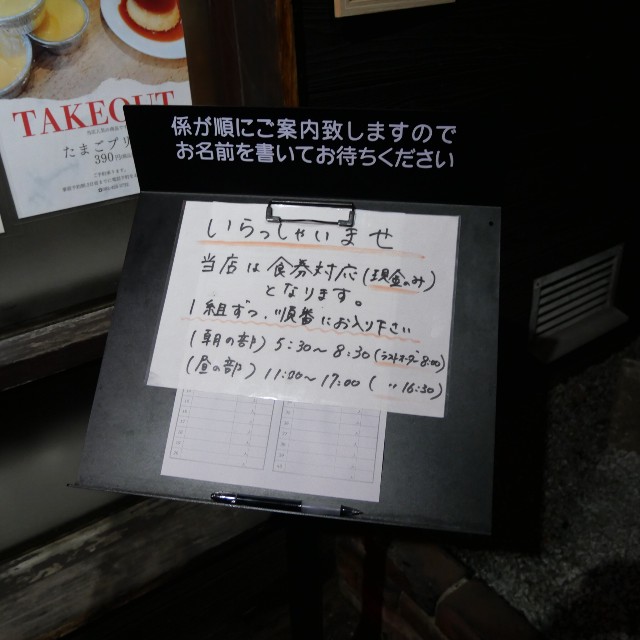 TAKEOUT
たまごプリ
390円
係が順にご案内致しますので
お名前を書いてお待ちください
いらっしゃいませ
当店は食券対応(現金のみ)
となります。
1組ずつ、順番にお入り下さい
(朝の部) 5:30〜8:30 (ラストオーダー8:00)
(昼の部) 11:00〜17:00 ( 〃 16:30)